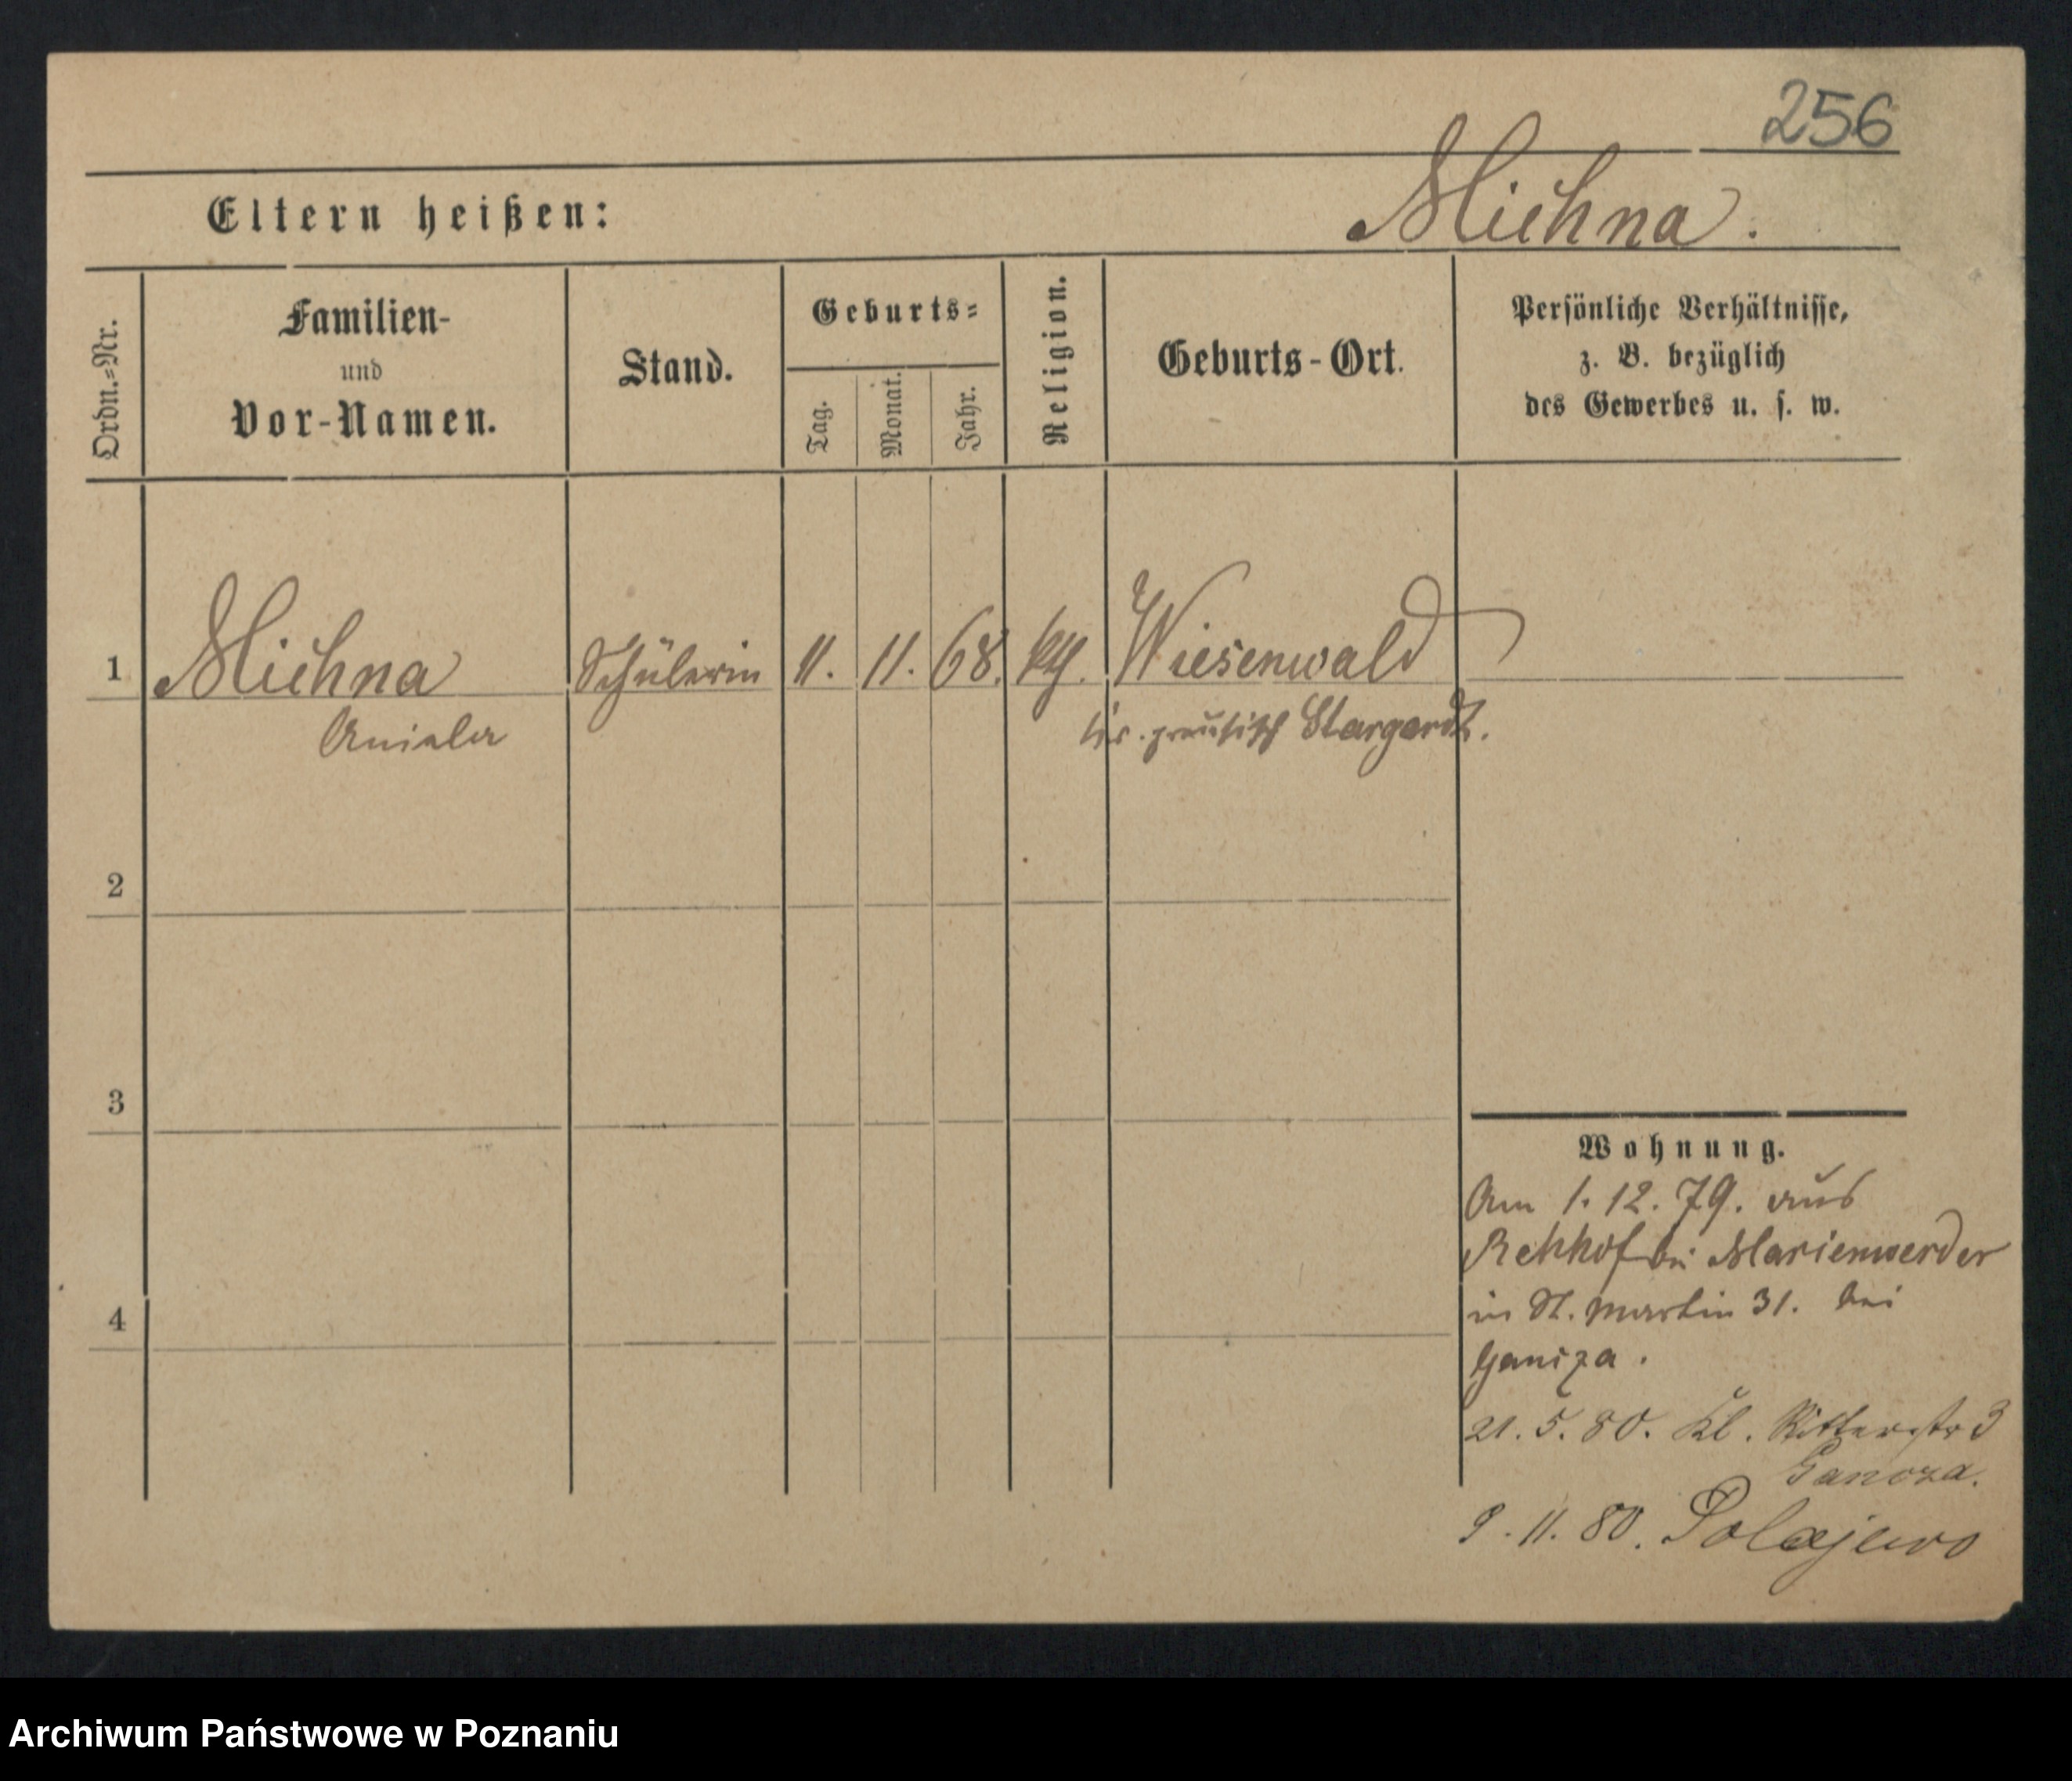 256
Michna.
Eltern heißen:
Ordn.=Nr.
Familien-
und
Vor-Namen.
Stand.
Geburts=
Tag.
Monat.
Jahr.
Religion.
Geburts-Ort.
Persönliche Verhältnisse,
z. B. bezüglich
des Gewerbes u. s. w.
1 Michna Schülerin 11. 11. 68. kth. Wiesenwald
Aniela
Kr. preußisch Stargardt.
2
3
4
Wohnung.
Am 1. 12. 79. aus
Rehhof bei Marienwerder
in St. Martin 31. bei
21. 5. 80. Kl. Ritterstr 3
9. 11. 80. Polajewo
Archiwum Państwowe w Poznaniu